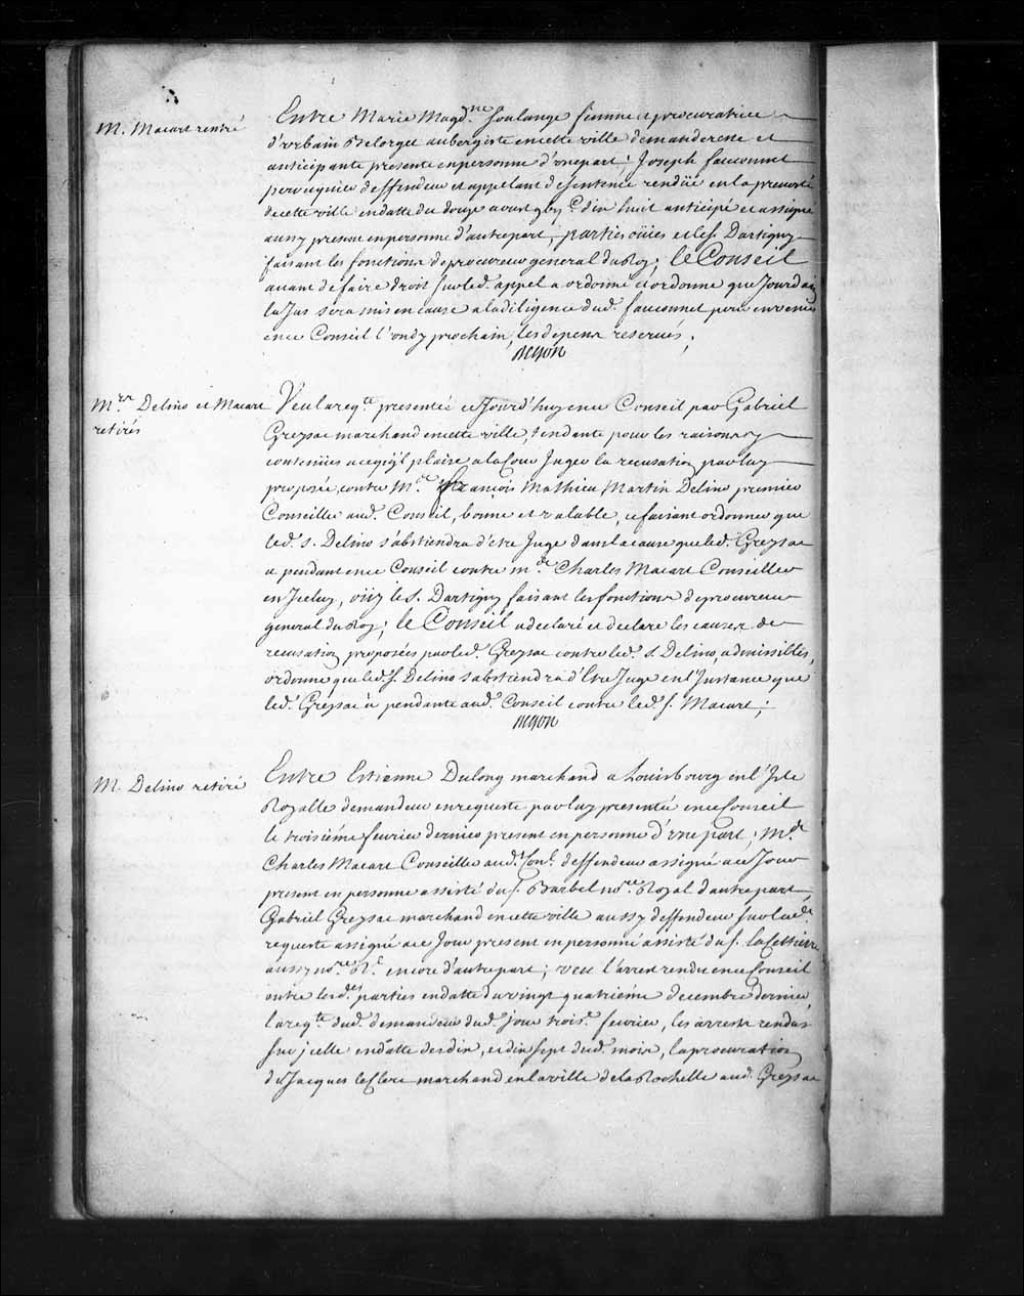 M. Macart rentré
Entre Marie Magd.ne Soulange femme et procuratrice
d'vrbain Belorget aubergiste en cette ville demanderesse et
anticipante presente en personne d'vne part; Joseph fauconnet
peruquier deffendeur et appelant de sentence rendüe en la prevosté
de cette ville en datte du douze avust dix huit anticipé et assigné
aussy present en personne d'autre part, parties oüies et le s. Dartigny
faisant les fonctions de procureur general du Roy; le Conseil
avant de faire droit sur led. appel a ordonné et ordonne que Jourdain
la Jus sera mis en cause a la diligence dud. fauconnet pour en venir
en ce Conseil l'ondy prochain, les depens reservés;
Begon
M.rs Delino et Macart
retirés
Veu la req.te presentée ce Jourd'huy en ce Conseil par Gabriel
Greysac marchand en cette ville, tendante pour les raisons y
contenües a ce qu'il plaise a la Cour Juger la recusation par luy
proposée contre M.e françois Mathieu Martin Delino premier
Conseiller aud. Conseil, bonne et valable, ce faisant ordonner que
led. s. Delino s'abstiendra d'etre Juge dans la cause que led. Greysac
a pendant en ce Conseil contre m.e Charles Macart Conseiller
en Iceluy, oüy le s. Dartigny faisant les fonctions de procureur
general du Roy; le Conseil a declaré et declare les causes de
recusation proposées par led. Greysac contre led. s. Delino, admissibles,
ordonne que led. s. Delino s'abstiendra d'Etre Juge en l'Instance que
led. Greysac à pendante aud. Conseil contre led. s. Macart;
Begon
M. Delino retiré
Entre Estienne Dulong marchand a Louisbourg en l'Isle
Royalle demandeur en requeste par luy presentée en ce Conseil
le troisiéme fevrier dernier present en personne d'vne part; M.e
Charles Macart Conseiller aud. Con.l deffendeur assigné a ce Jour
present en personne assisté du s. Barbel no.re Royal d'autre part,
Gabriel Greysac marchand en cette ville aussy deffendeur sur lad.
requeste assigné a ce Jour present en personne assisté du s. la Cettiere
aussy no.re R.l encore d'autre part; veu l'arrest rendu en ce Conseil
entre lesd. parties en datte du vingt quatriéme decembre dernier,
la req.te dud. demandeur dud. jour trois.e fevrier, les arrests rendus
sur jcelle en datte des dix, et dix sept dud. mois, la procuration
de Jacques leClerc marchand en la ville de la Rochelle aud. Greysac